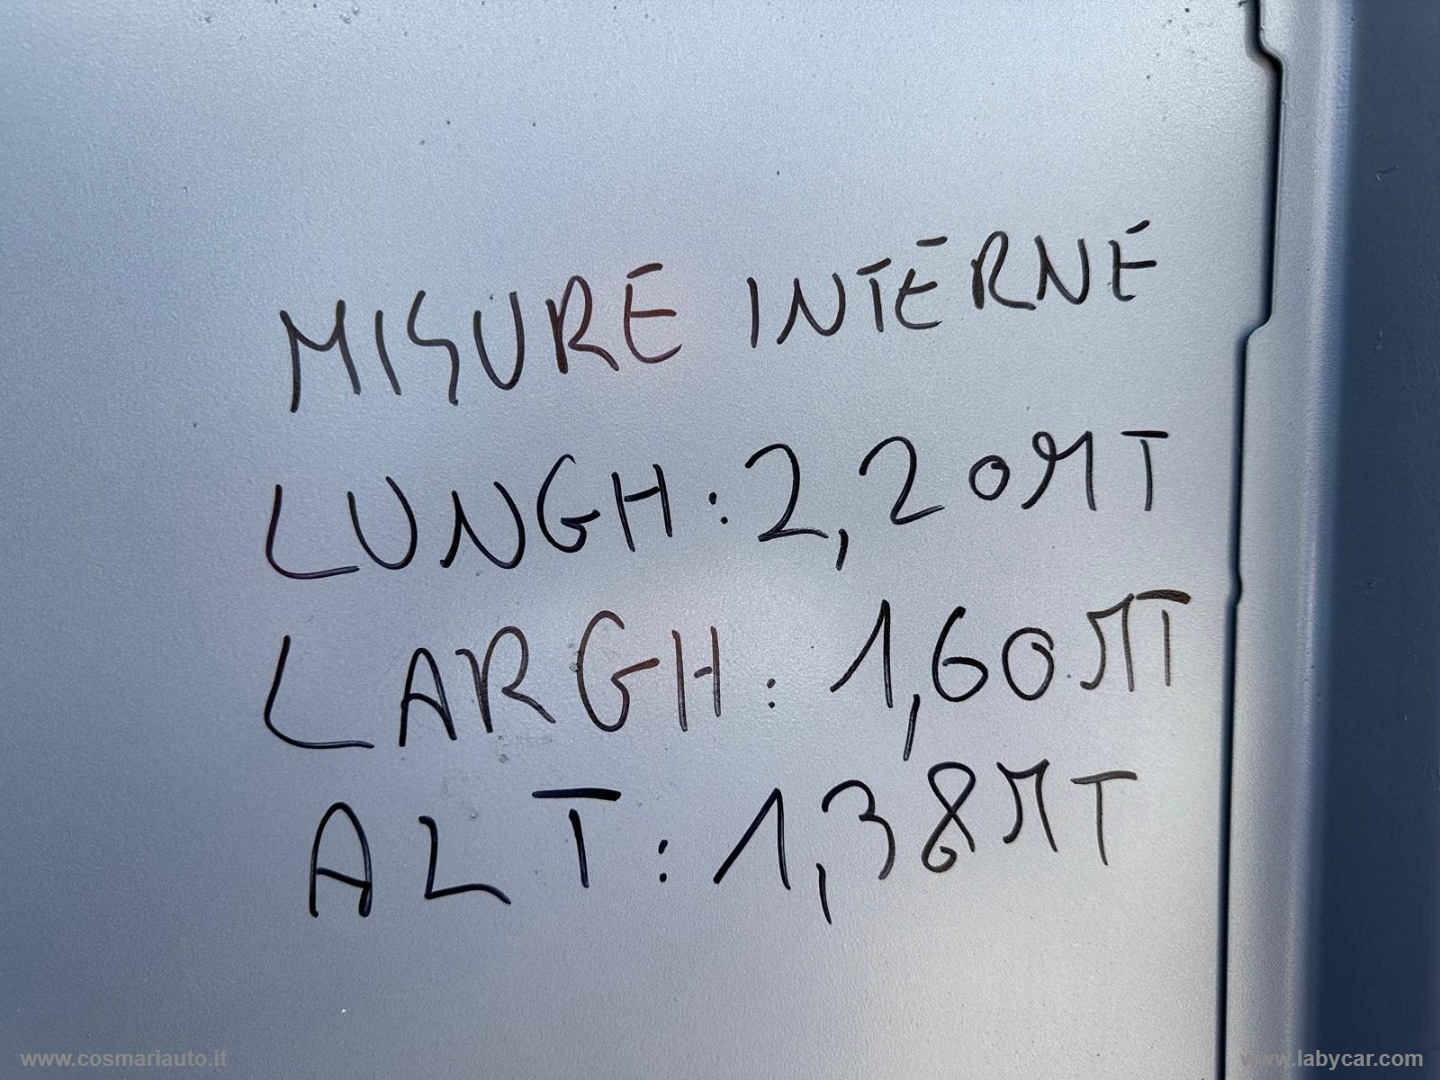 MISURE INTERNE
LUNGH: 2,20 MT
LARGH: 1,60 MT
ALT: 1,38 MT
www.cosmariauto.it
www.labycar.com